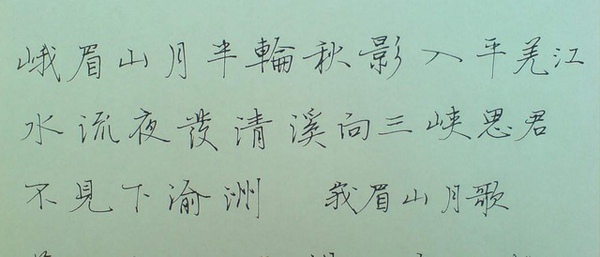 峨眉山月半輪秋影入平羌江
水流夜發清溪向三峽思君
不見下渝洲 我眉山月歌